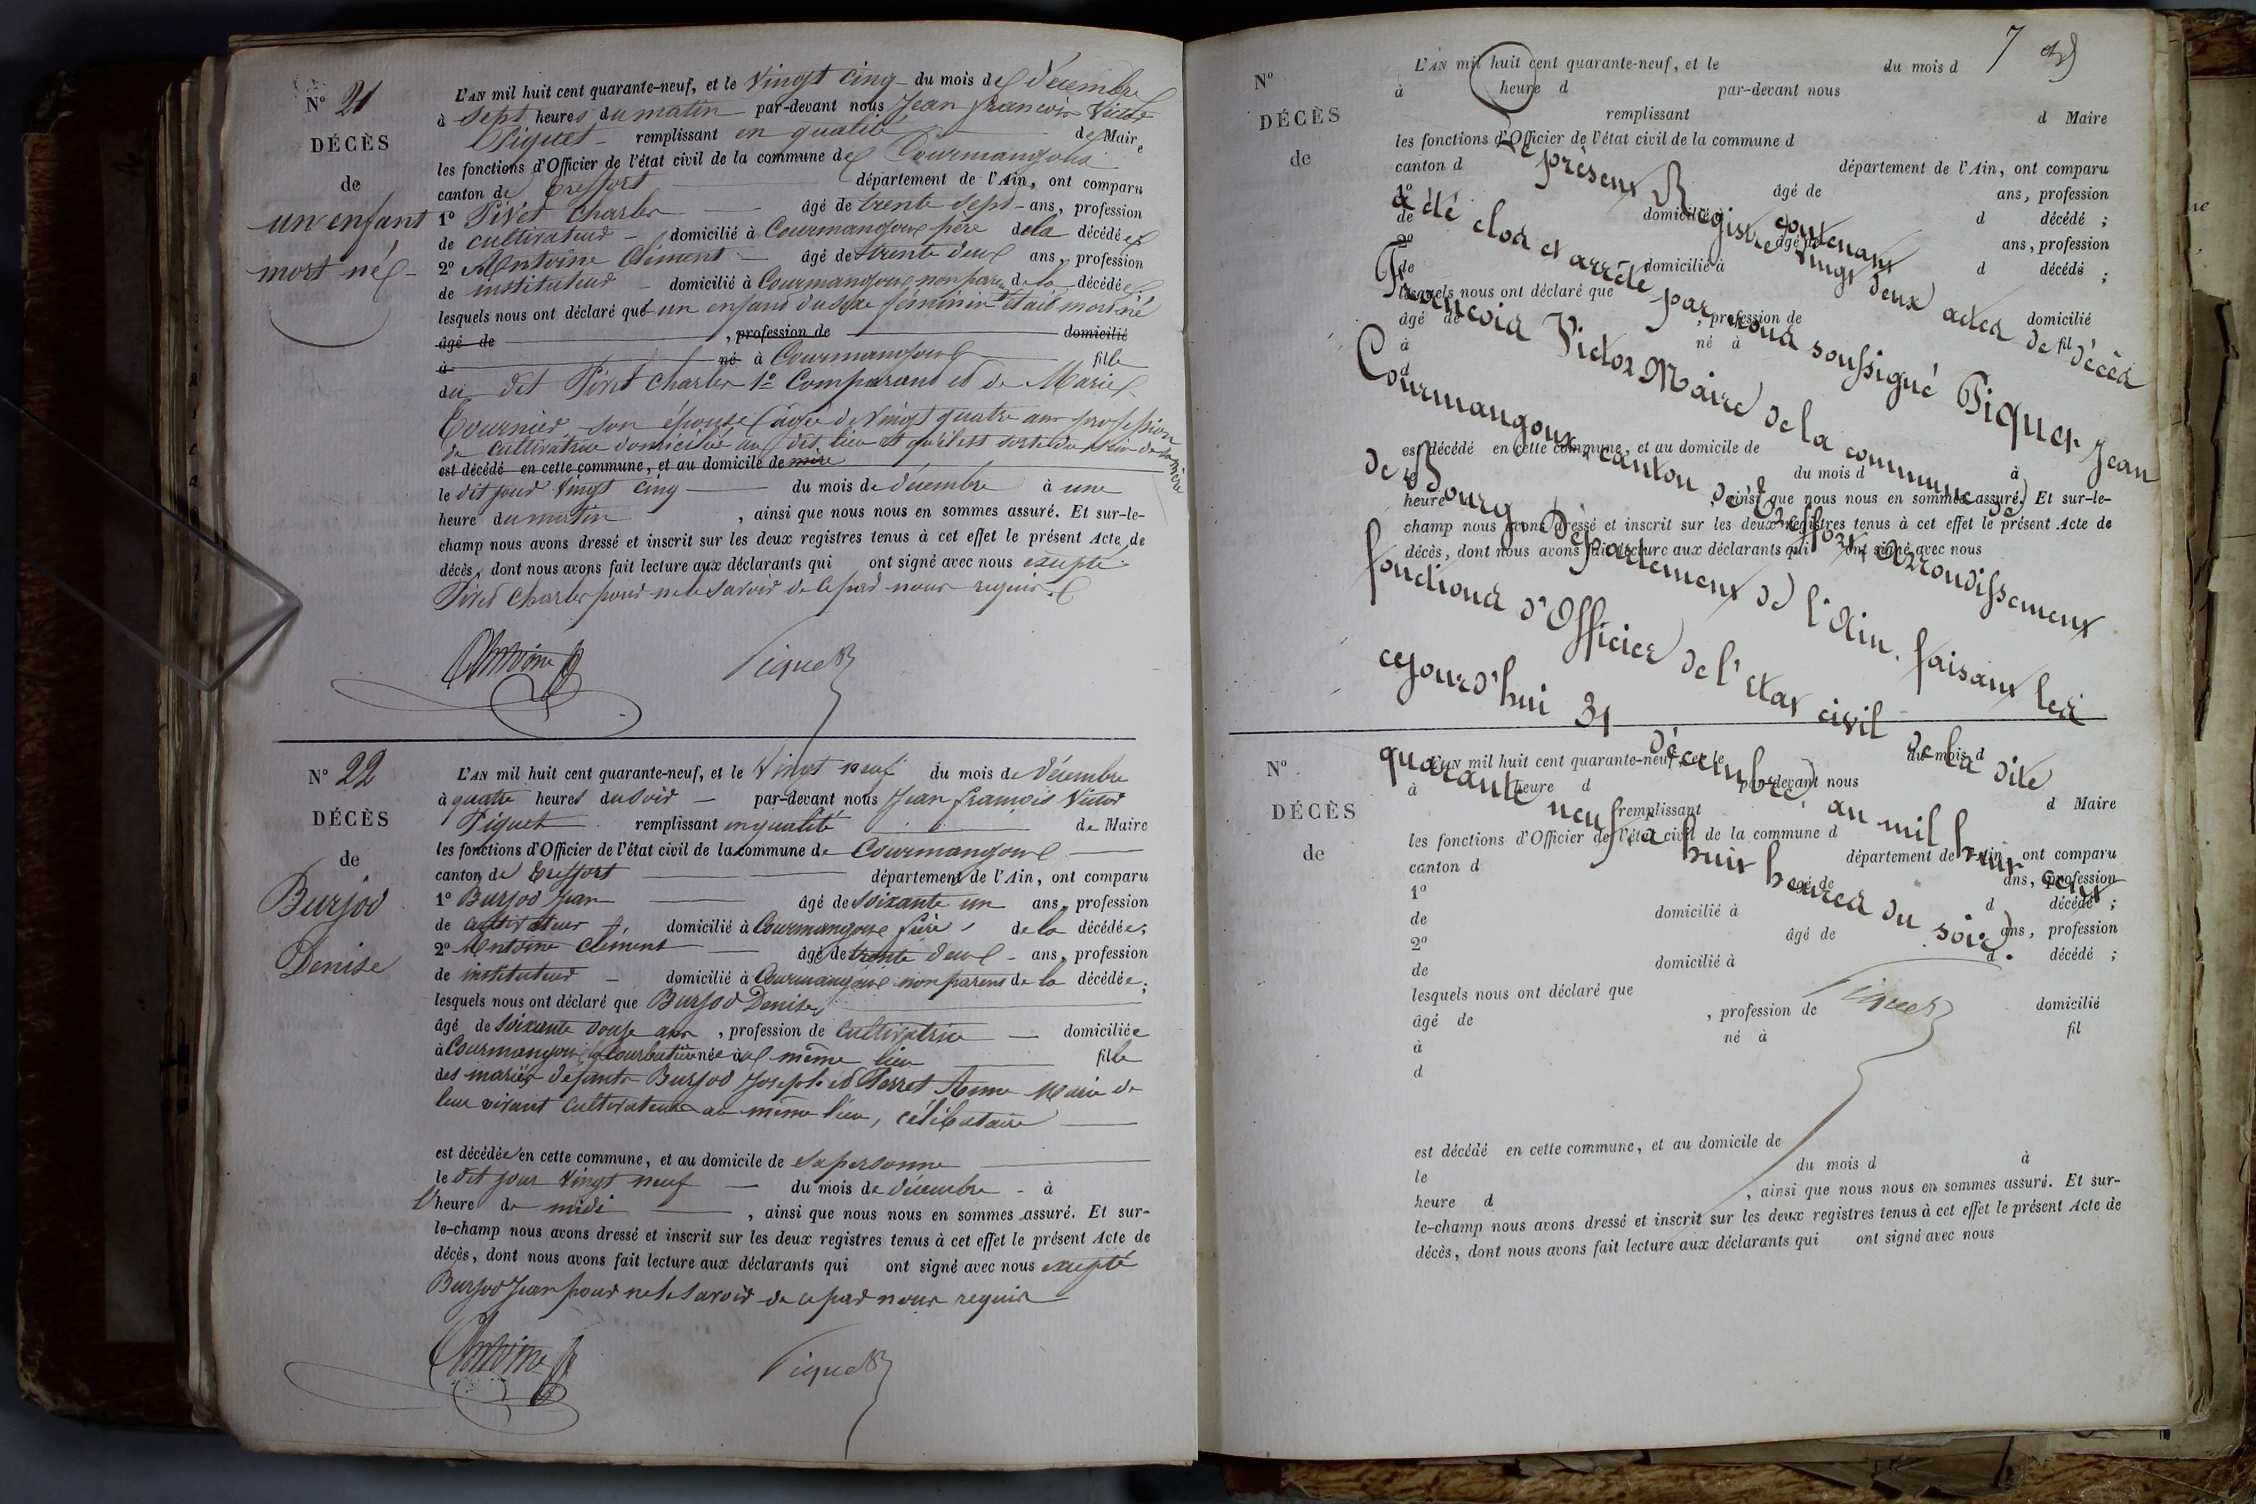 N° 21
DÉCÈS
de
un enfant
mort né
L'AN mil huit cent quarante-neuf, et le Vingt cinq du mois de décembre
à sept heures du matin par-devant nous Jean françois Victor
Piquet remplissant en qualité de Maire
les fonctions d'Officier de l'état civil de la commune de Courmangoux
canton de Treffort département de l'Ain, ont comparu
1° Pivet Charles âgé de trente sept ans, profession
de cultivateur domicilié à Courmangoux père de la décédée
2° Antoine Clément âgé de trente deux ans, profession
de instituteur domicilié à Courmangoux non parent de la décédée
lesquels nous ont déclaré que un enfant du sexe féminin était mort né
âgé de , profession de domicilié
à né à Courmangoux fille
du dit Pivet Charles 1° Comparant et de Marie
Tournier son épouse âgée de Vingt quatre ans profession
de cultivatrice domiciliée au dit lieu et qu'il est sorti du sein de sa mère
est décédé en cette commune, et au domicile de mère
le dit jour Vingt cinq du mois de décembre à une
heure du matin , ainsi que nous nous en sommes assuré. Et sur-le-
champ nous avons dressé et inscrit sur les deux registres tenus à cet effet le présent Acte de
décès, dont nous avons fait lecture aux déclarants qui ont signé avec nous excepté
Pivet Charles pour ne le savoir de ce part nous requis
Antoine Piquet
N° 22
DÉCÈS
de
Burjod
Denise
L'AN mil huit cent quarante-neuf, et le Vingt neuf du mois de décembre
à quatre heures du soir par-devant nous Jean françois Victor
Piquet remplissant en qualité de Maire
les fonctions d'Officier de l'état civil de la commune de Courmangoux
canton de Treffort département de l'Ain, ont comparu
1° Burjod Jean âgé de soixante un ans, profession
de cultivateur domicilié à Courmangoux frère de la décédée;
2° Antoine Clément âgé de trente deux ans, profession
de instituteur domicilié à Courmangoux non parent de la décédée;
lesquels nous ont déclaré que Burjod Denise
âgé de soixante douze ans , profession de cultivatrice domiciliée
à Courmangoux née au même lieu fille
des mariés défunts Burjod Joseph et Perret Anne Marie de
leur vivant cultivateurs au même lieu, célibataire
est décédée en cette commune, et au domicile de sa personne
le dit jour Vingt neuf du mois de décembre à
l'heure de midi , ainsi que nous nous en sommes assuré. Et sur-
le-champ nous avons dressé et inscrit sur les deux registres tenus à cet effet le présent Acte de
décès, dont nous avons fait lecture aux déclarants qui ont signé avec nous excepté
Burjod Jean pour ne le savoir de ce part nous requis
Antoine Piquet
7
N°
DÉCÈS
de
L'AN mil huit cent quarante-neuf, et le du mois d
à heure d par-devant nous
remplissant d Maire
les fonctions d'Officier de l'état civil de la commune d
canton d département de l'Ain, ont comparu
1° âgé de ans, profession
de domicilié à d décédé ;
2° âgé de ans, profession
de domicilié à d décédé ;
lesquels nous ont déclaré que
âgé de , profession de domicilié
à né à fil
d
est décédé en cette commune, et au domicile de
le du mois d à
heure d , ainsi que nous nous en sommes assuré. Et sur-le-
champ nous avons dressé et inscrit sur les deux registres tenus à cet effet le présent Acte de
décès, dont nous avons fait lecture aux déclarants qui ont signé avec nous
Le présent Registre contenant Vingt deux actes de décès
a été clos et arrêté par nous soussigné Piquet Jean
François Victor Maire de la commune de
Courmangoux, canton de Treffort arrondissement
de Bourg, Département de l'Ain, faisant les
fonctions d'Officier de l'état civil de la dite
cejourd'hui 31 décembre, an mil huit cent
quarante neuf à huit heures du soir.
Piquet
N°
DÉCÈS
de
L'AN mil huit cent quarante-neuf, et le du mois d
à heure d par-devant nous
remplissant d Maire
les fonctions d'Officier de l'état civil de la commune d
canton d département de l'Ain, ont comparu
1° âgé de ans, profession
de domicilié à d décédé ;
2° âgé de ans, profession
de domicilié à d décédé ;
lesquels nous ont déclaré que
âgé de , profession de domicilié
à né à fil
d
est décédé en cette commune, et au domicile de
le du mois d à
heure d , ainsi que nous nous en sommes assuré. Et sur-
le-champ nous avons dressé et inscrit sur les deux registres tenus à cet effet le présent Acte de
décès, dont nous avons fait lecture aux déclarants qui ont signé avec nous